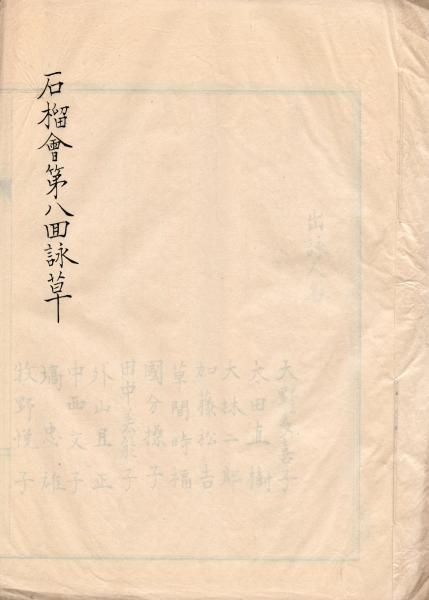 石榴會第八回詠草
出詠人名
太田直樹
大林二郎
如藤松吉
草間時福
國分操子
田中美登子
外山且正
中西文子
塙忠雄
牧野悦子